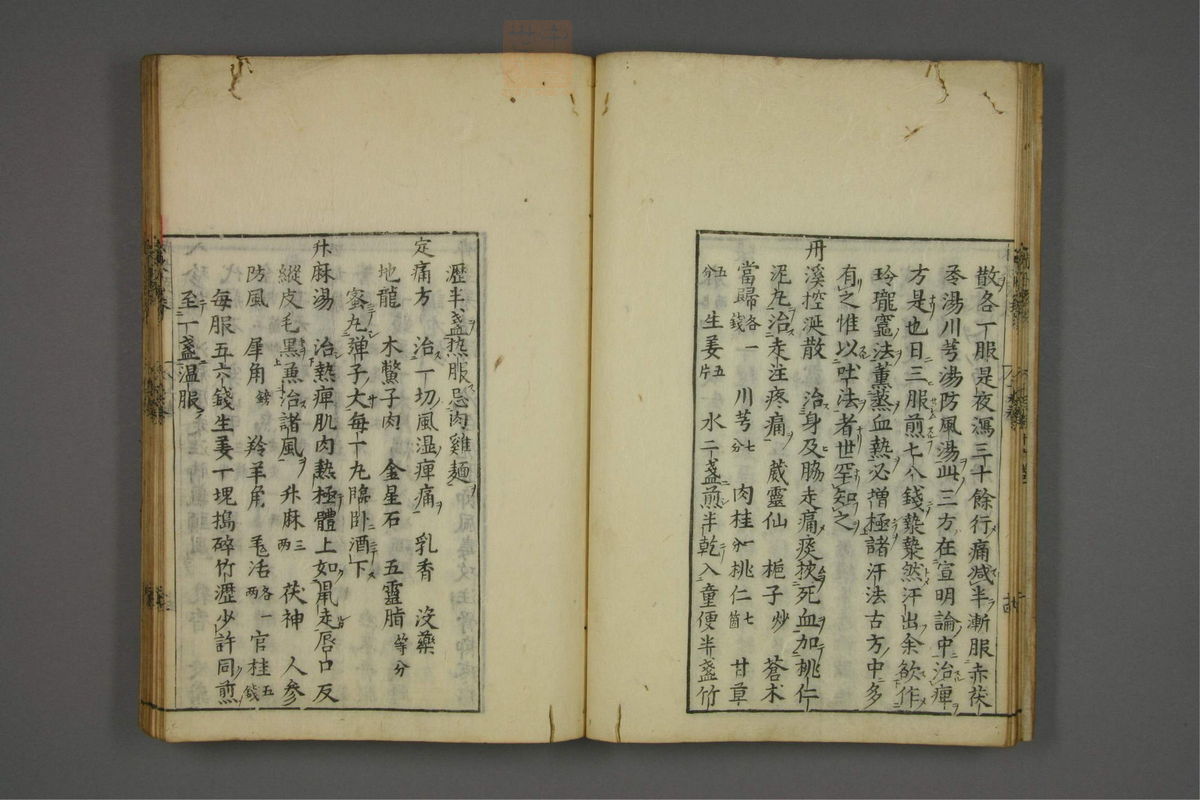 散各一服是夜瀉三十餘行痛减半漸服赤茯
苓湯川芎湯防風湯此三方在宣明論中治痺
方是也日三服煎七八錢漐漐然汗出余欲作
玲瓏竈法薰蒸血熱必増極諸汗法古方中多
有之惟以吐法者世罕知之
丹溪控涎散 治身及脇走痛痰挾死血加桃仁
泥丸治走注疼痛 葳靈仙 梔子炒 蒼朮
當歸各一錢 川芎七分 肉桂一分 桃仁七箇 甘草
五分 生姜五片 水二盞煎半乾入童便半盞竹
瀝半盞热服忌肉雞麺
定痛方 治一切風湿痺痛 乳香 沒藥
地龍 木鱉子肉 金星石 五靈脂等分
蜜丸弾子大每一丸臨卧酒下
升麻湯 治熱痺肌肉熱極體上如鼠走唇口反
縱皮毛黑兼治諸風 升麻三兩 茯神 人參
防風 犀角鎊 羚羊角 羌活各一兩 官桂五錢
每服五六錢生姜一塊搗碎竹瀝少許同煎
至一盞温服